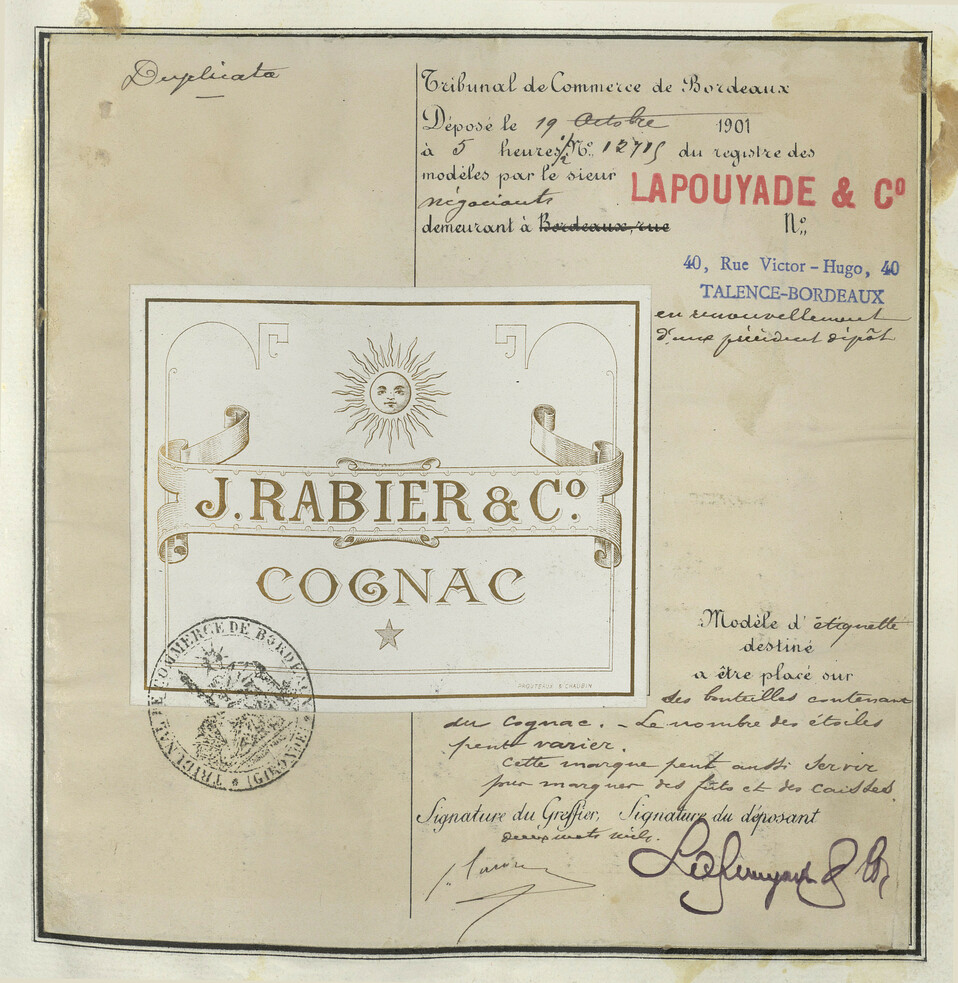 Duplicata
Tribunal de Commerce de Bordeaux
Déposé le 19 Octobre 1901
à 5 heures 1/2 No. 12715 du registre des
modèles par le sieur LAPOUYADE & Co
négociants
demeurant à Bordeaux, rue No.
40, Rue Victor-Hugo, 40
TALENCE-BORDEAUX
en renouvellement
d'une précédent dépôt
J. RABIER & Co.
COGNAC
PROUTEAUX & CHAUDIN
TRIBUNAL DE COMMERCE DE BORDEAUX * (GIRONDE) *
Modèle d'étiquette
destiné
a être placé sur
des bouteilles contenant
du Cognac. - Le nombre des étoiles
peut varier.
Cette marque peut aussi servir
pour marquer des fûts et des caisses.
Signature du Greffier, Signature du déposant
deux mots nuls.
Lapouyade & Co